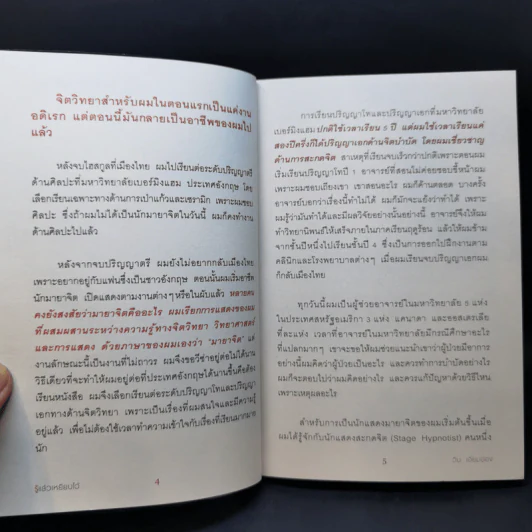 จิตวิทยาสำหรับผมในตอนแรกเป็นแต่งาน
อดิเรก แต่ตอนนี้มันกลายเป็นอาชีพของผมไป
แล้ว
หลังจบไฮสกูลที่เมืองไทย ผมไปเรียนต่อระดับปริญญาตรี
ด้านศิลปะที่มหาวิทยาลัยเบอร์มิงแฮม ประเทศอังกฤษ โดย
เลือกเรียนเฉพาะทางด้านการเป่าแก้วและเซรามิก เพราะผมชอบ
ศิลปะ ซึ่งถ้าผมไม่ได้เป็นนักมายาจิตในวันนี้ ผมก็คงทำงาน
ด้านศิลปะไปแล้ว
หลังจากจบปริญญาตรี ผมยังไม่อยากกลับเมืองไทย
เพราะอยากอยู่กับแฟนซึ่งเป็นชาวอังกฤษ ตอนนั้นผมเริ่มอาชีพ
นักมายาจิต เปิดแสดงตามงานต่างๆหรือในผับแล้ว หลายคน
คงยังสงสัยว่ามายาจิตคืออะไร ผมเรียกการแสดงของผม
ที่ผสมผสานระหว่างความรู้ทางจิตวิทยา วิทยาศาสตร์
และการแสดง ด้วยภาษาของผมเองว่า "มายาจิต" แต่
งานลักษณะนี้เป็นงานที่ไม่ถาวร ผมจึงขอวีซ่าอยู่ต่อไม่ได้นาน
วิธีเดียวที่จะทำให้ผมอยู่ต่อที่ประเทศอังกฤษได้นานขึ้นคือต้อง
เรียนหนังสือ ผมจึงเลือกเรียนต่อระดับปริญญาโทและปริญญา
เอกทางด้านจิตวิทยา เพราะเป็นเรื่องที่ผมสนใจและมีความรู้
อยู่แล้ว เพื่อไม่ต้องใช้เวลาทำความเข้าใจกับเรื่องที่เรียนมากมาย
นัก
รู้แล้วเหยียบไว้
4
การเรียนปริญญาโทและปริญญาเอกที่มหาวิทยาลัย
เบอร์มิงแฮมปกติใช้เวลาเรียน 5 ปี แต่ผมใช้เวลาเรียนแค่
สองปีครึ่งก็ได้ปริญญาเอกด้านจิตบำบัด โดยผมเชี่ยวชาญ
ด้านการสะกดจิต สาเหตุที่เรียนจบเร็วกว่าปกติเพราะตอนผม
เริ่มเรียนปริญญาโทปี 1 อาจารย์ที่สอนไม่ค่อยชอบขี้หน้าผม
เพราะผมชอบเถียงเขา เขาสอนอะไร ผมก็ค้านตลอด บางครั้ง
อาจารย์บอกว่าเรื่องนี้ทำไม่ได้ ผมก็มักจะแย้งว่าทำได้ เพราะ
ผมรู้ว่ามันทำได้และมีผลวิจัยอย่างนั้นอย่างนี้ อาจารย์จึงให้ผม
ทำวิทยานิพนธ์ให้เสร็จภายในภาคเรียนฤดูร้อน แล้วให้ผมข้าม
จากชั้นปีหนึ่งไปเรียนชั้นปี 4 ซึ่งเป็นการออกไปฝึกงานตาม
คลินิกและโรงพยาบาลต่างๆ เมื่อผมเรียนจบปริญญาเอกผม
ก็กลับเมืองไทย
ทุกวันนี้ผมเป็นผู้ช่วยอาจารย์ในมหาวิทยาลัย 5 แห่ง
ในประเทศสหรัฐอเมริกา 3 แห่ง แคนาดา และออสเตรเลีย
ที่ละแห่ง เวลาที่อาจารย์ในมหาวิทยาลัยมีกรณีศึกษาอะไร
ที่แปลกมากๆ เขาจะขอให้ผมช่วยแนะนำเขาว่าผู้ป่วยมีอาการ
อย่างนี้ผมคิดว่าผู้ป่วยเป็นอะไร และควรทำการบำบัดอย่างไร
ผมก็จะตอบไปว่าผมคิดอย่างไร และควรแก้ปัญหาด้วยวิธีไหน
เพราะเหตุผลอะไร
สำหรับการเป็นนักแสดงมายาจิตของผมเริ่มต้นขึ้นเมื่อ
ผมได้รู้จักกับนักแสดงสะกดจิต (Stage Hypnotist) คนหนึ่ง
5